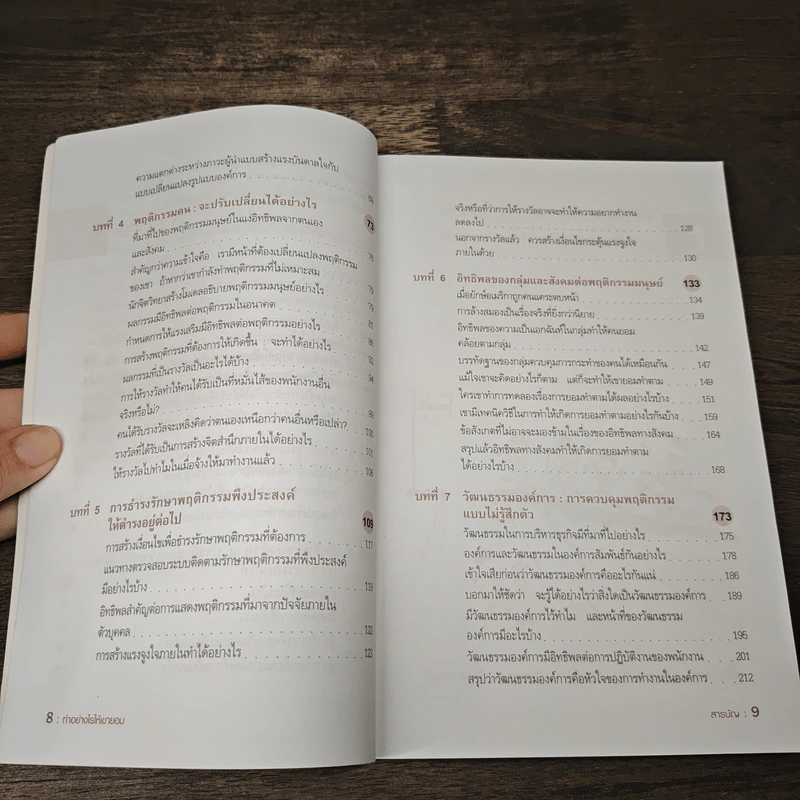 ความแตกต่างระหว่างภาวะผู้นำแบบสร้างแรงบันดาลใจกับ
แบบเปลี่ยนแปลงรูปแบบองค์การ 69
บทที่ 4 พฤติกรรมคน : จะปรับเปลี่ยนได้อย่างไร 73
ที่มาที่ไปของพฤติกรรมมนุษย์ในแง่อิทธิพลจากตนเอง
และสังคม 76
สำคัญกว่าความเข้าใจคือ เรามีหน้าที่ต้องเปลี่ยนแปลงพฤติกรรม
ของเขา ถ้าหากว่าเขากำลังทำพฤติกรรมที่ไม่เหมาะสม 79
นักจิตวิทยาสร้างโมเดลอธิบายพฤติกรรมมนุษย์อย่างไร 79
ผลกรรมมีอิทธิพลต่อพฤติกรรมในอนาคต 81
กำหนดการให้แรงเสริมมีอิทธิพลต่อพฤติกรรมอย่างไร 86
การสร้างพฤติกรรมที่ต้องการให้เกิดขึ้น : จะทำได้อย่างไร 92
ผลกรรมที่เป็นรางวัลเป็นอะไรได้บ้าง 94
การให้รางวัลทำให้คนได้รับเป็นที่หมั่นไส้ของพนักงานอื่น
จริงหรือไม่? 99
คนได้รับรางวัลจะเหลิงคิดว่าตนเองเหนือกว่าคนอื่นหรือเปล่า? 100
รางวัลที่ได้รับเป็นการสร้างจิตสำนึกภายในได้อย่างไร 101
ให้รางวัลไปทำไมในเมื่อจ้างให้มาทำงานแล้ว 106
บทที่ 5 การธำรงรักษาพฤติกรรมพึงประสงค์
ให้ดำรงอยู่ต่อไป 109
การสร้างเงื่อนไขเพื่อธำรงรักษาพฤติกรรมที่ต้องการ 117
แนวทางตรวจสอบระบบติดตามรักษาพฤติกรรมที่พึงประสงค์
มีอย่างไรบ้าง 119
อิทธิพลสำคัญต่อการแสดงพฤติกรรมที่มาจากปัจจัยภายใน
ตัวบุคคล 122
การสร้างแรงจูงใจภายในทำได้อย่างไร 123
8 : ทำอย่างไรให้เขายอม
จริงหรือที่ว่าการให้รางวัลอาจจะทำให้ความอยากทำงาน
ลดลงไป 128
นอกจากรางวัลแล้ว ควรสร้างเงื่อนไขกระตุ้นแรงจูงใจ
ภายในด้วย 130
บทที่ 6 อิทธิพลของกลุ่มและสังคมต่อพฤติกรรมมนุษย์ 133
เมื่อยักษ์อเมริกาถูกคนแคระตบหน้า 134
การล้างสมองเป็นเรื่องจริงที่ยิ่งกว่านิยาย 139
อิทธิพลของความเป็นเอกฉันท์ในกลุ่มทำให้คนยอม
คล้อยตามกลุ่ม 142
บรรทัดฐานของกลุ่มควบคุมการกระทำของคนได้เหมือนกัน 147
แม้ใจเขาจะคิดอย่างไรก็ตาม แต่ก็จะทำให้เขายอมทำตาม 149
ใครเขาทำการทดลองเรื่องการยอมทำตามได้ผลอย่างไรบ้าง 151
เขามีเทคนิควิธีในการทำให้เกิดการยอมทำตามอย่างไรกันบ้าง 159
ข้อสังเกตที่ไม่อาจจะมองข้ามในเรื่องของอิทธิพลทางสังคม 164
สรุปแล้วอิทธิพลทางสังคมทำให้เกิดการยอมทำตาม
ได้อย่างไรบ้าง 168
บทที่ 7 วัฒนธรรมองค์การ : การควบคุมพฤติกรรม
แบบไม่รู้สึกตัว 173
วัฒนธรรมในการบริหารธุรกิจมีที่มาที่ไปอย่างไร 175
องค์การและวัฒนธรรมในองค์การสัมพันธ์กันอย่างไร 178
เข้าใจเสียก่อนว่าวัฒนธรรมองค์การคืออะไรกันแน่ 186
บอกมาให้ชัดว่า จะรู้ได้อย่างไรว่าสิ่งใดเป็นวัฒนธรรมองค์การ 189
มีวัฒนธรรมองค์การไว้ทำไม และหน้าที่ของวัฒนธรรม
องค์การมีอะไรบ้าง 195
วัฒนธรรมองค์การมีอิทธิพลต่อการปฏิบัติงานของพนักงาน 201
สรุปว่าวัฒนธรรมองค์การคือหัวใจของการทำงานในองค์การ 212
สารบัญ : 9